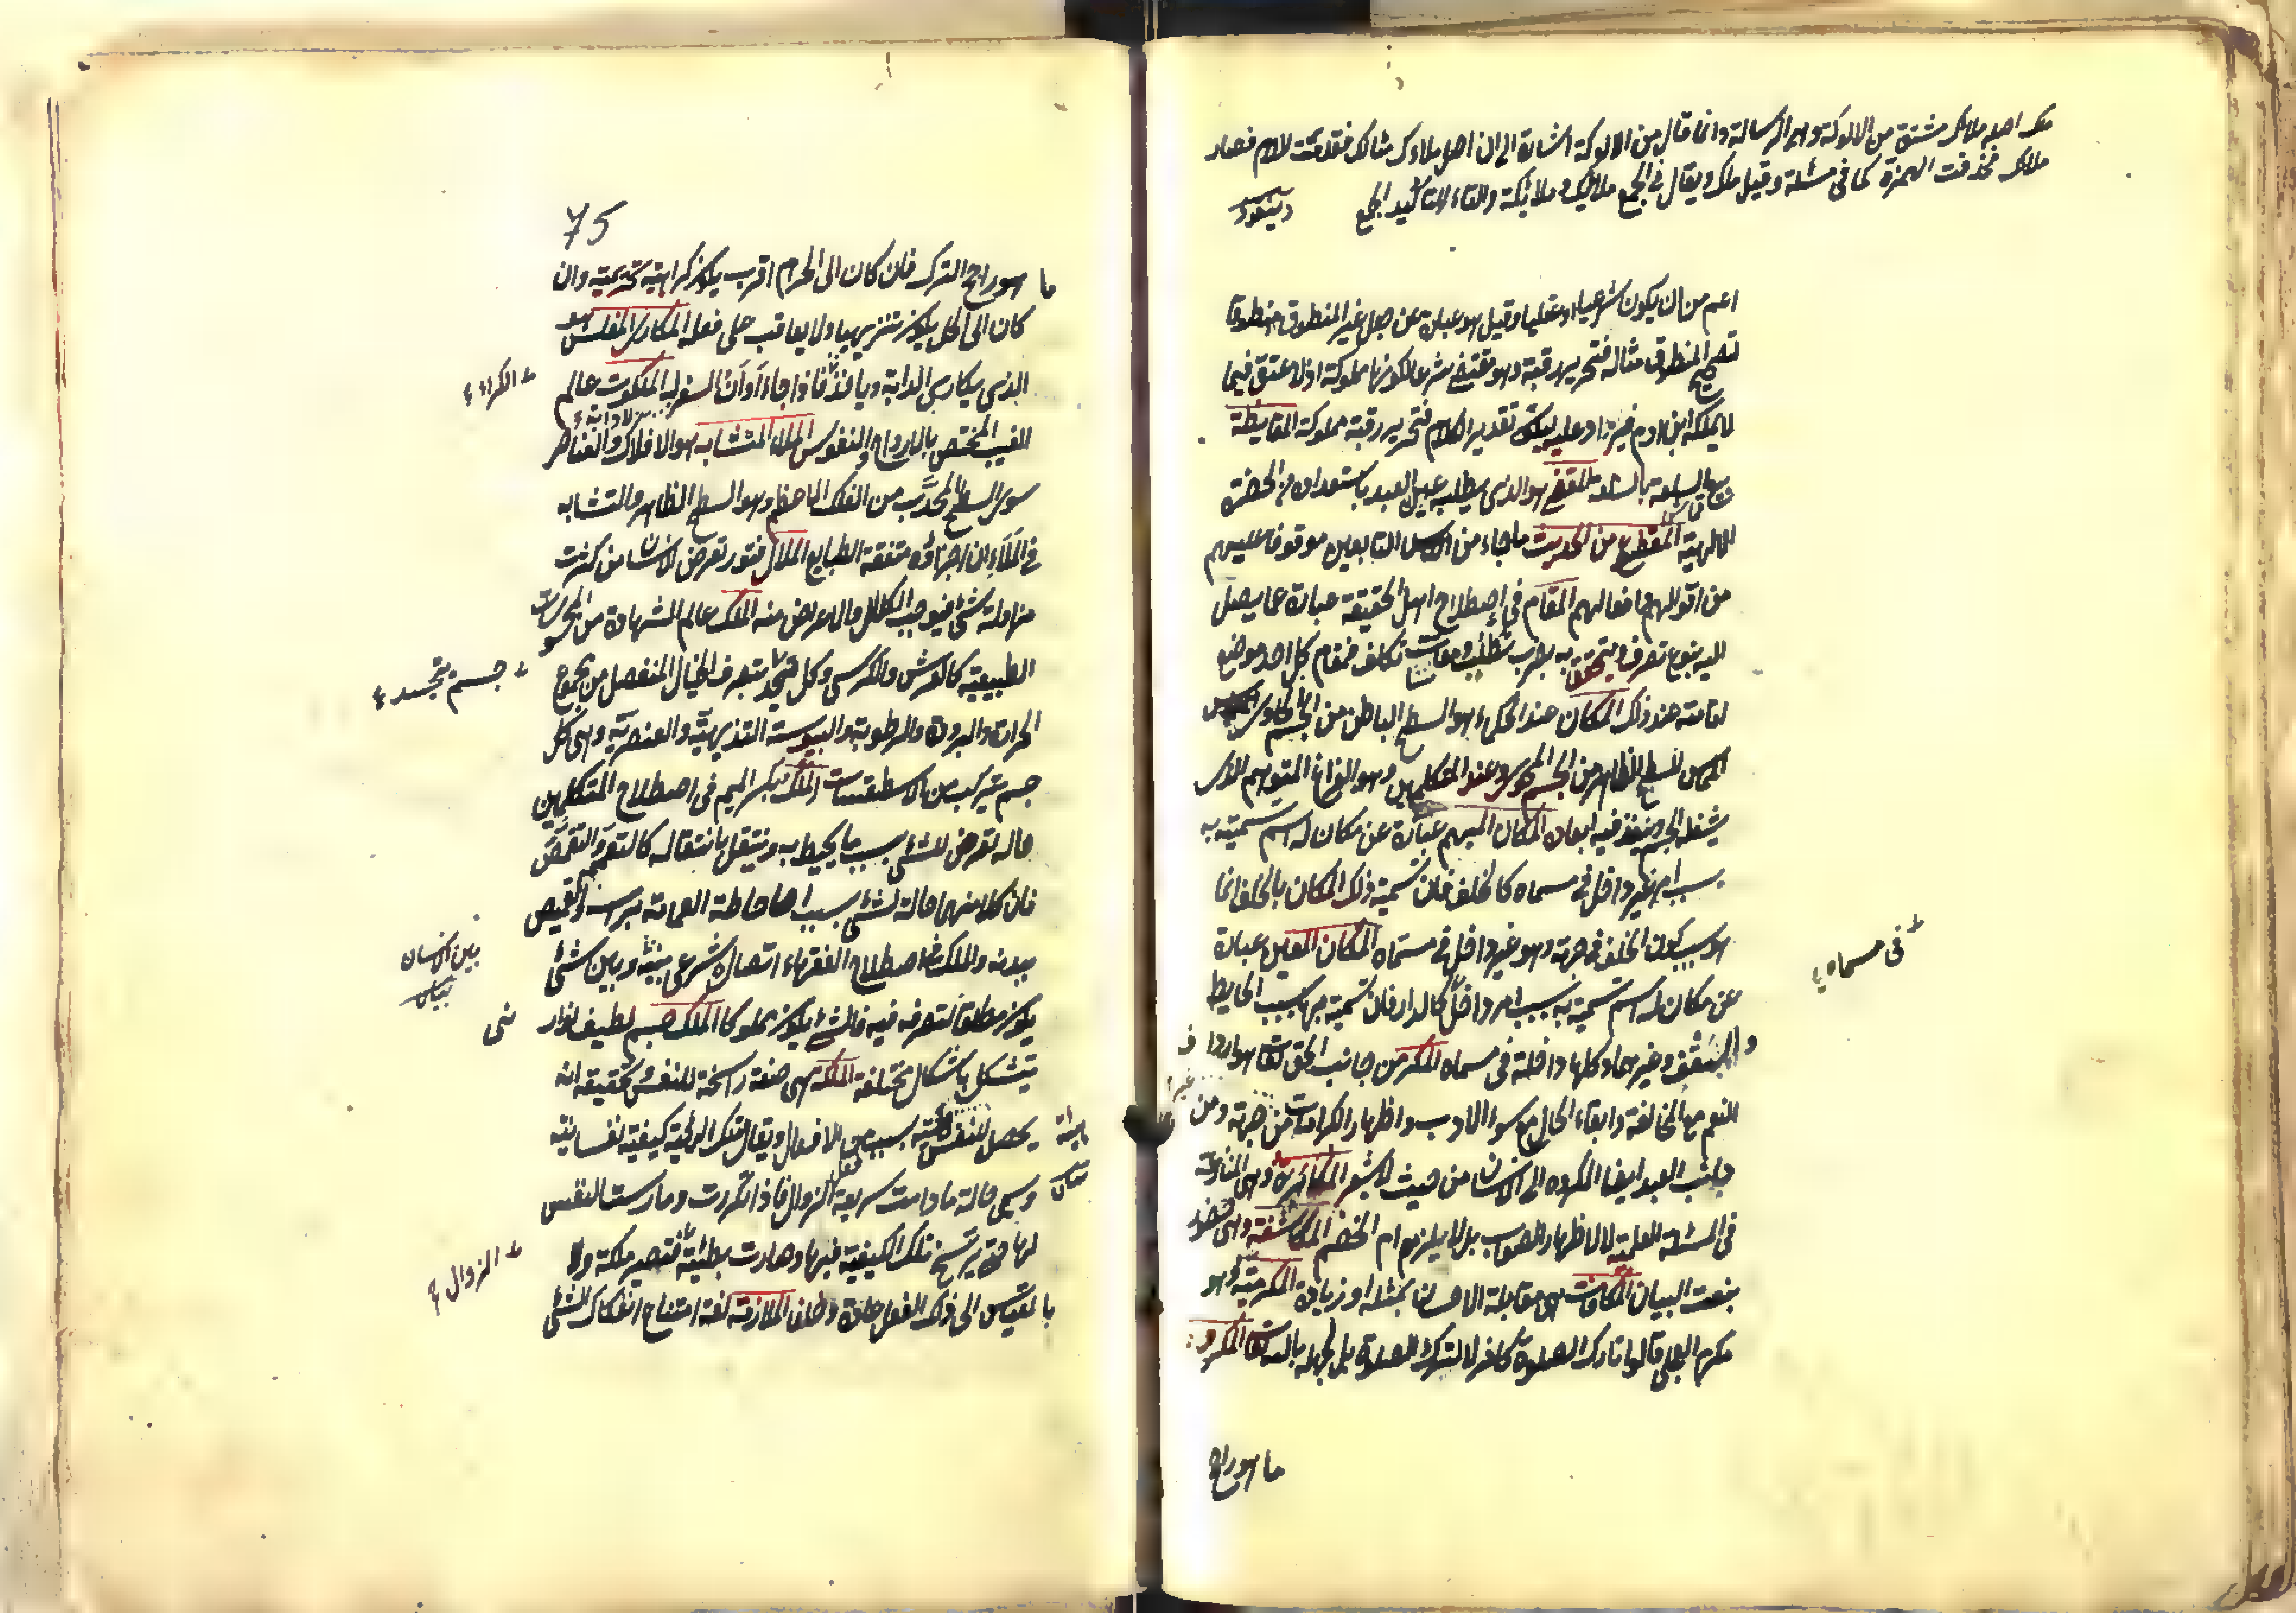 ملك اصله ملاك مشتق من الالوكة وهي الرسالة وانما قال من الالوكة اشارة الى ان اصل ملاءك مثالك فقدمت اللام فصار
ملاك فحذفت الهمزة كما فى مسئلة وقيل ملك ويقال فى الجمع ملائك وملائكة والتاء لتاكيد الجمع
اعم من ان يكون شرعيا او عقليا وقيل هو عبارة عن جعل غير المنطوق منطوقا
لتصحيح المنطوق مثاله فتحرير رقبة وهو مقتضى شرعا لكونها مملوكة اذ لا عتق فيما
لا يملكه ابن ادم فيزاد عليه ليكون تقدير الكلام فتحرير رقبة مملوكة المقايضة
بيع السلعة بالسلعة المقتضى هو الذى يطلبه عين العبد باستعداده من الحضرة
الالهية المقطوع من الحديث ماجاء من التابعين موقوفا عليهم
من اقوالهم وافعالهم المقام فى اصطلاح اهل الحقيقة عبارة عما يصل
اليه بنوع تصرف ويتحقق به بضرب تطلب ومقاسات تكلف فمقام كل احد موضع
اقامته عند ذلك المكان عند الحكماء هو السطح الباطن من الجسم الحاوى
المماس للسطح الظاهر من الجسم المحوى وعند المتكلمين وهو الفراغ المتوهم الذى
يشغله الجسم وينفذ فيه ابعاده المكان المبهم عبارة عن مكان له اسم تسميته به
بسبب امر غير داخل فى مسماه كالخلف فان تسمية ذلك المكان بالخلف انما
هو بسبب كون الخلف فى جهة وهو غير داخل فى مسماه المكان المعين عبارة
فى مسماه
عن مكان له اسم تسميته به بسبب امر داخل كالدار فان تسميته بها بسبب الحايط
والسقف وغيرهما وكلها داخلة فى مسماه المكر من جانب الحق تعالى هو ارداف
النعم مع المخالفة وابقاء الحال مع سوء الادب واظهار الكرامات من غير جهة ومن
جانب العبد ايصال المكروه الى الانسان من حيث لا يشعر المكابرة وهى المنازعة
فى المسئلة العلمية لا لاظهار الصواب بل لالزام الخصم المكاشفة وهى حضور
بنعت البيان المكافات هى مقابلة الاحسان بمثله او زيادة المكرمية وهو
مكرم العجلى قالوا تارك الصلوة كافر لا لترك الصلوة بل لجهله بالله تعالى المكروه
ما هو راجح
75
ما هو راجح الترك فان كان الى الحرام اقرب يكون كراهية تحريمية وان
كان الى الحل يكون تنزيهيا ولا يعاقب على فعله المكارى المفلس هو
الذى يكارى الدابة وياخذ الكراء فاذا جاء اوان السفر لا دابة له الملكوت عالم
الغيب المختص بالارواح والنفوس الملاء المتشابه هو الافلاك والعناصر
سوى السطح المحدب من الفلك الاعظم وهو السطح الظاهر والتشابه
فى الملاء ان اجزاؤه متفقة الطبايع الملال فتور تعرض الانسان من كثرت
مزاولة شئ فيوجب الكلال والاعراض عنه الملك عالم الشهادة من المحسوسات
الطبيعية كالعرش والكرسى وكل جسم تجسد يتصرف الخيال المنفصل من مجموع
الحرارة والبرودة والرطوبة واليبوسة التنزيهية والعنصرية وهى كل
جسم يتركب من الاسطقسات الملك بكسر الميم فى اصطلاح المتكلمين
حالة تعرض للشئ بسبب ما يحيط به وينتقل بانتقاله كالتعمم والتقمص
فان كلا منهما حالة لشئ بسبب احاطة العمامة براسه والقميص
ببدنه والملك فى اصطلاح الفقهاء اتصال شرعى بين الانسان وبين شئ
يكون مطلقا لتصرفه فيه فالشئ يكون مملوكا الملك جسم لطيف نورانى
يتشكل باشكال مختلفة الملكة هى صفة راسخة للنفس تحقيقه انه
يحصل للنفس هيئة بسبب فعل من الافعال ويقال لتلك الهيئة كيفية نفسانية
وسمى حالة ما دامت سريعة الزوال فاذا تكررت ومارست النفس
لها حتى ترسخ تلك الكيفية فيها وصارت بطيئة الزوال فتصير ملكة و
بالقياس الى ذلك الفعل عادة وخلقا الملازمة لغة امتناع انفكاك الشئ